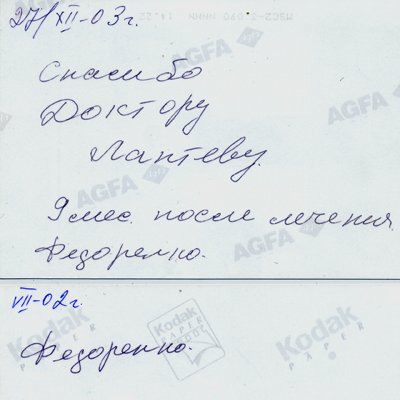 27/XII-03г.
Спасибо
Доктору
Лаптеву.
9 мес. после лечения
Федоренко.
VII-02г.
Федоренко.
AGFA
AGFA
AGFA
AGFA
Kodak
PAPER
Kodak
PAPER
Kodak
PAPER